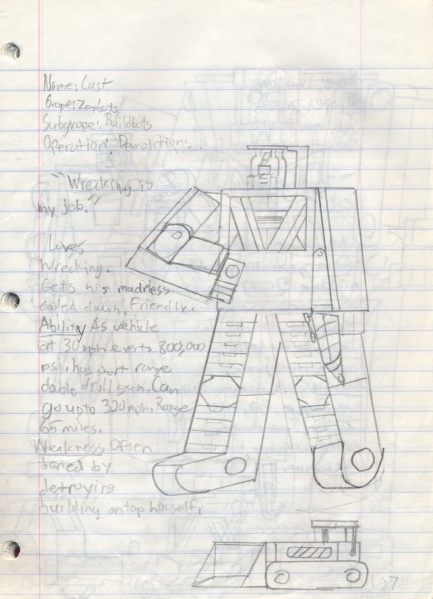 Name: Cast
Grope: Zembots
Subgrope: Buildbots
Operation: Demolitions.
"Wrecking is
my job."
Loves
wrecking.
Gets his madness
cooled down, Friendly.
Ability As vehicle
at 30 mph exerts 800,000
psi, has short range
doble drill gun. Can
go upto 320 mph. Range
65 miles.
Weakness Often
bored by
detroying
building ontop himself.
107